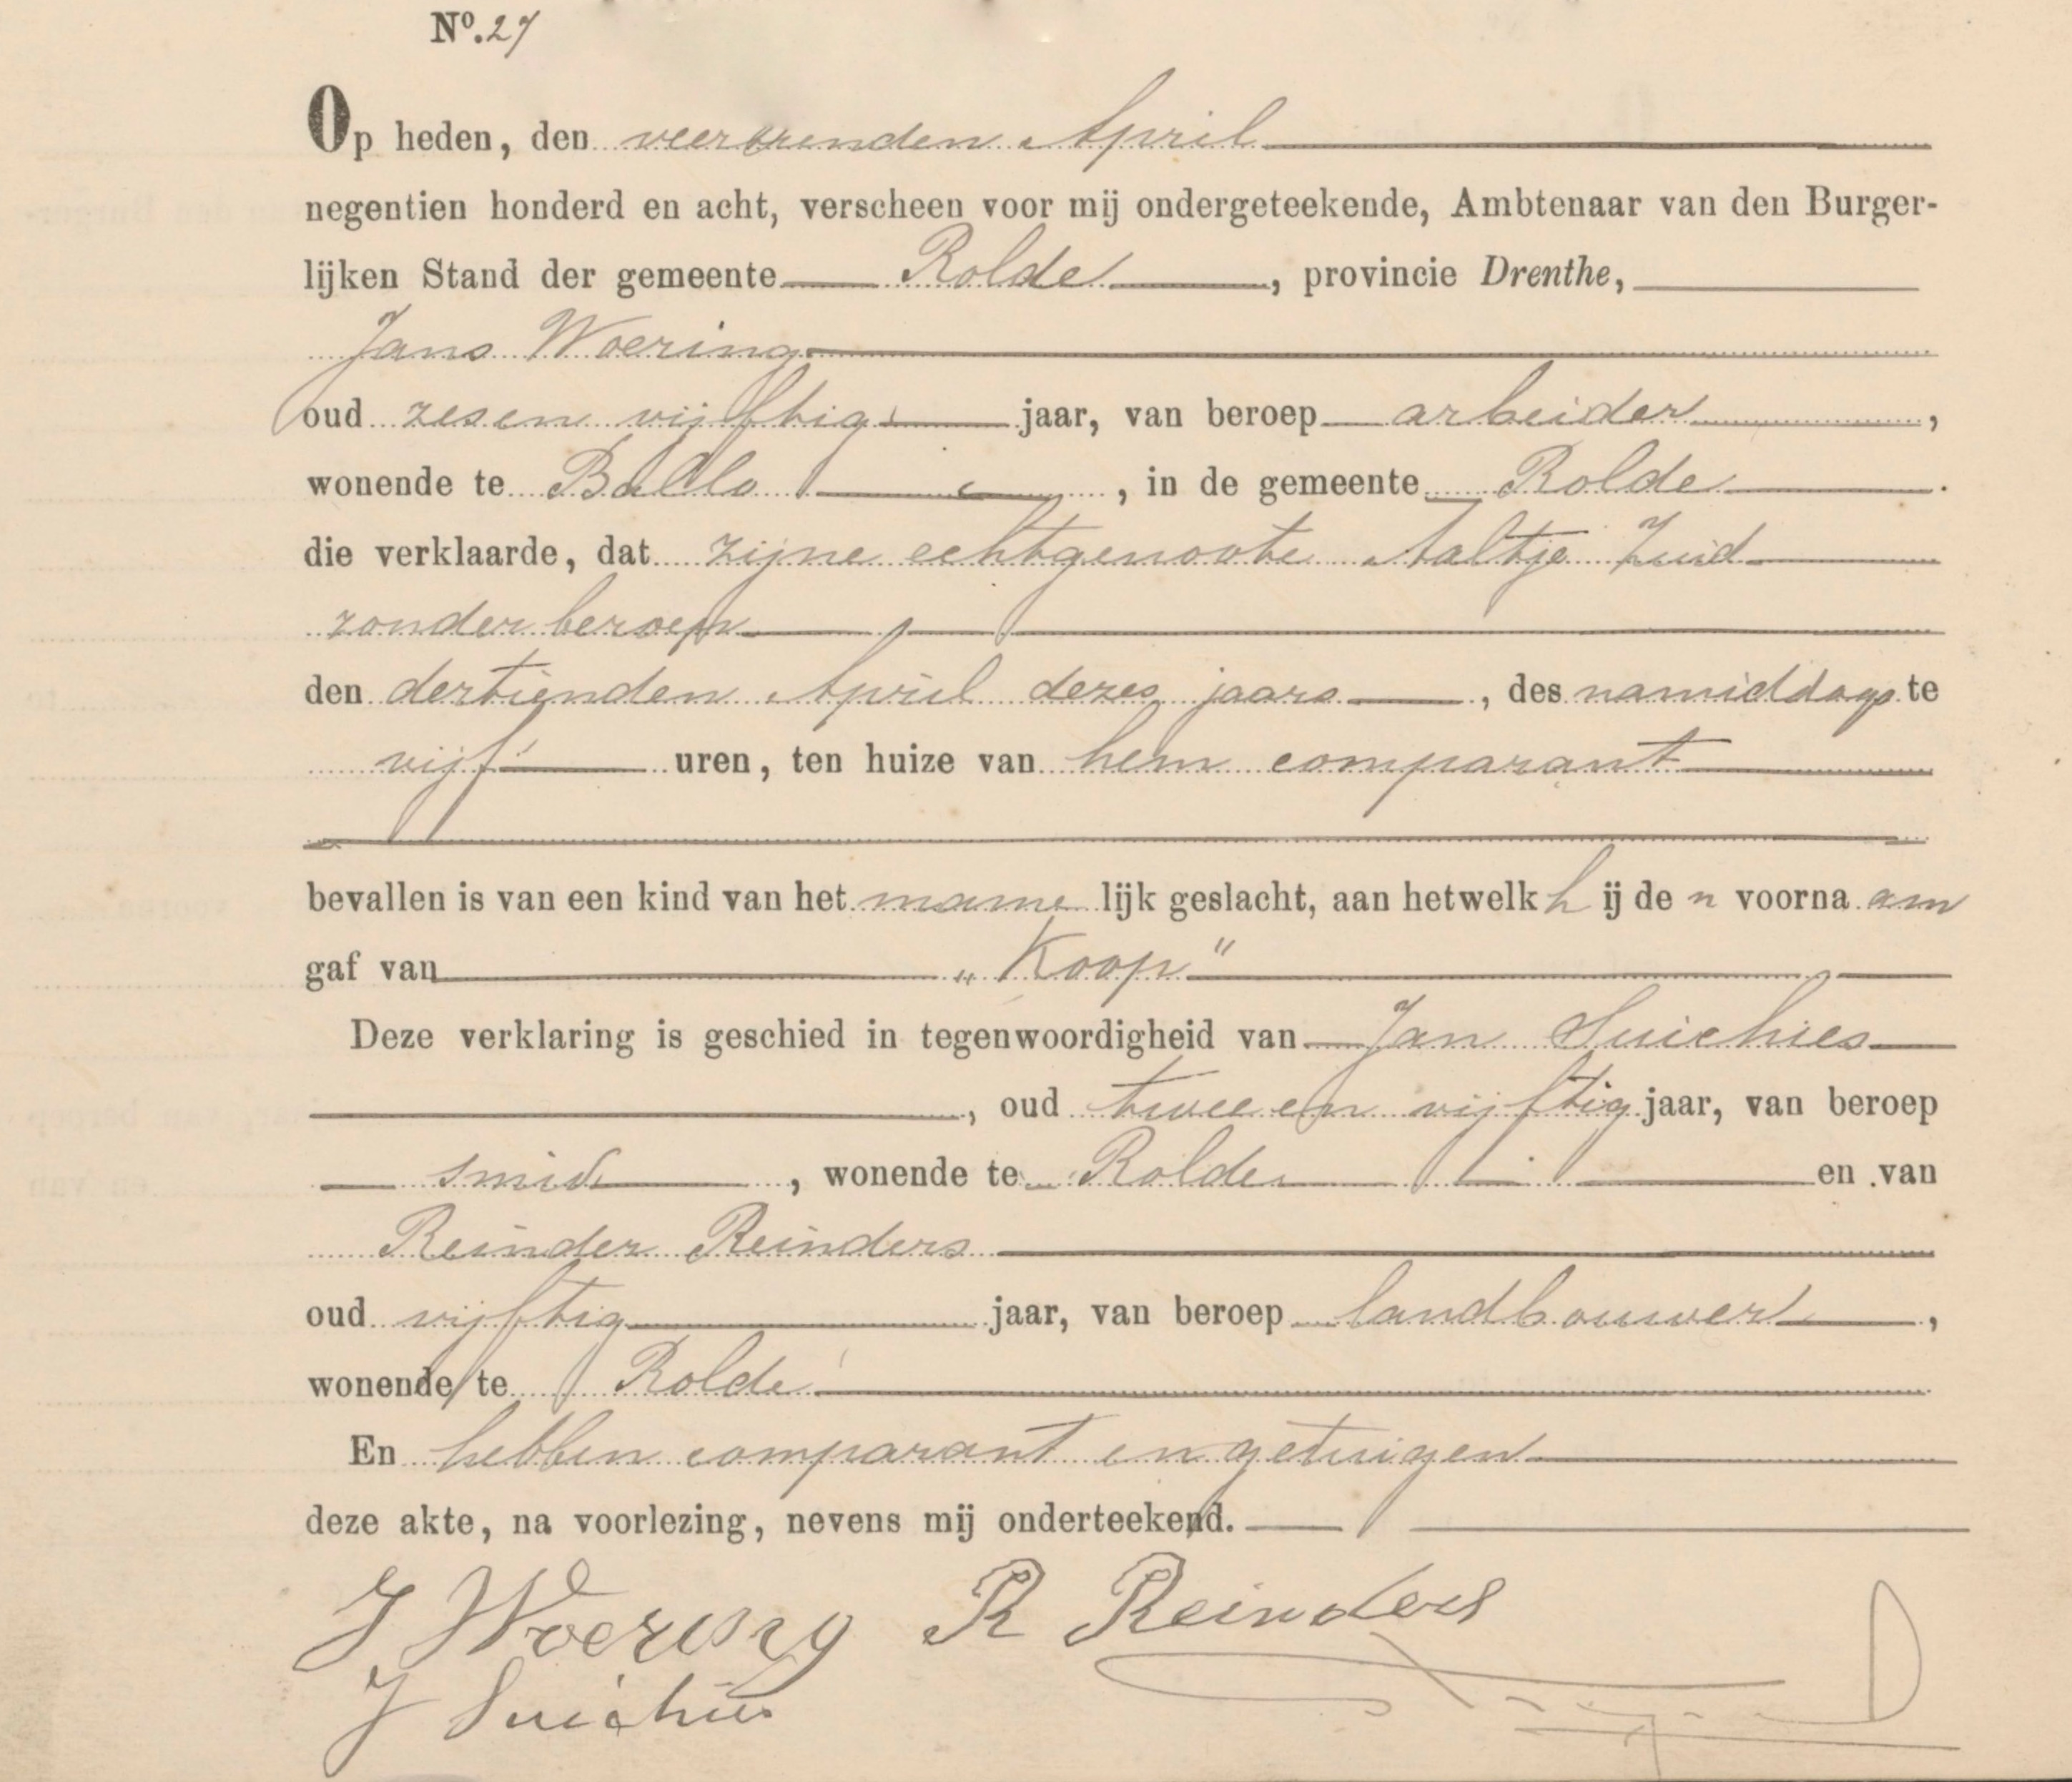 Nº. 27
Op heden, den veertienden April
negentien honderd en acht, verscheen voor mij ondergeteekende, Ambtenaar van den Burger-
lijken Stand der gemeente Rolde, provincie Drenthe,
Jans Woering
oud zesen vijftig jaar, van beroep arbeider,
wonende te Ballo, in de gemeente Rolde.
die verklaarde, dat zijne echtgenoote Aaltje Zuid
zonder beroep
den dertienden April dezes jaars, des namiddags te
vijf uren, ten huize van hem comparant
bevallen is van een kind van het manne lijk geslacht, aan hetwelk h ij de n voorna am
gaf van „Koop"
Deze verklaring is geschied in tegenwoordigheid van Jan Suichies
, oud twee en vijftig jaar, van beroep
smid, wonende te Rolde en van
Reinder Reinders
oud vijftig jaar, van beroep landbouwer,
wonende te Rolde
En hebben comparant en getuigen
deze akte, na voorlezing, nevens mij onderteekend.
J Woering R Reinders
J Suichies